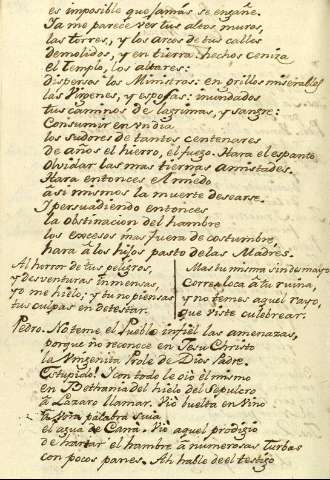 es imposible que jamas se engañe.
Ya me parece ver tus altos muros,
las torres, y los arcos de tus calles
demolidos, y en tierra: hechos ceniza
el Templo, los altares:
dispersos los Ministros: en grillos miserables
las Virgenes, y esposas: inundados
tus caminos de lagrimas, y sangre:
Consumir en un dia
los sudores de tantos centenares
de años el hierro, el fuego. Hara el espanto
olvidar las mas tiernas amistades.
Hara entonces el miedo
â si mismos la muerte desearse.
Y persuadiendo entonces
la obstinacion del hambre
los excesos mas fuera de costumbre,
hara â los hijos pasto de las Madres.
Al horror de tus peligros,
y desventuras inmensas,
yo me hielo; y tu no piensas
tus culpas en detestar.
Mas tu misma sin desmayo
Corres loca â tu ruina,
y no temes aquel rayo,
que viste culebrear.
Pedro. No teme el Pueblo infiel las amenazas,
porque no reconoce en Jesu Christo
la Unigenita Prole de Dios Padre.
Estupido! Y con todo le oiô êl mismo
en Bethania del hielo del Sepulcro
â Lazaro llamar. Viô buelta en Vino
la sola palabra suia
el agua de Canâ. Viô aquel prodigio
de hartar el hambre â numerosas turbas
con pocos panes. Ah hable de el testigo